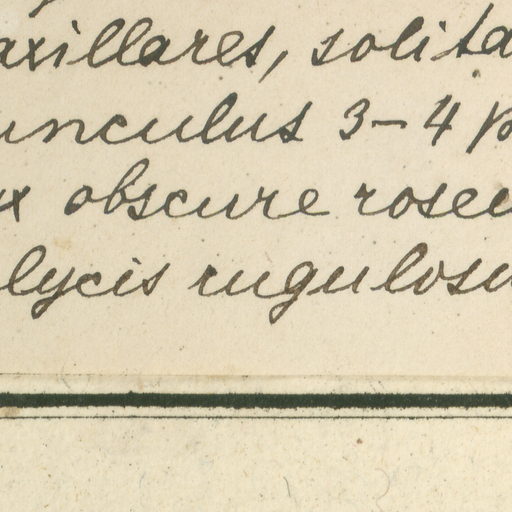 axillares, solita
unculus 3-4 p
x obscure roseu
lycis rugulosu